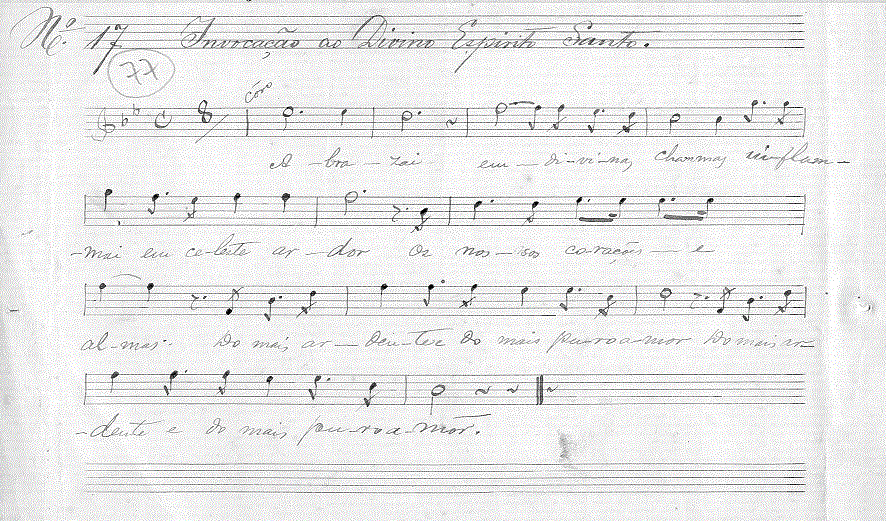 Nº 17 Invocação ao Divino Espirito Santo.
77
Côro
A-bra-zai em-di-vi-nas chammas in-flam-
-mai em ce-leste ar-dor Os nos-sos corações-e
al-mas. Do mais ar-den-te e do mais pu-ro a-mor Do mais ar-
-dente e do mais pu-ro a-mor.